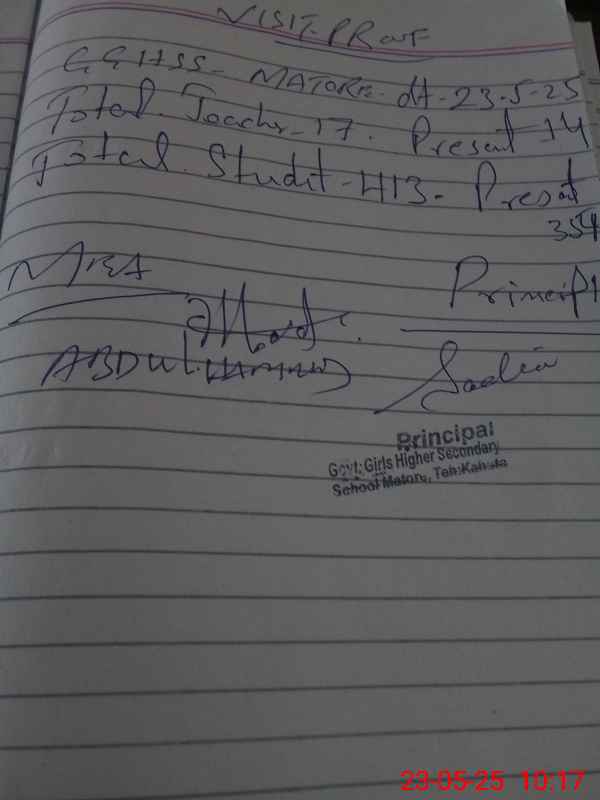 VISIT PROOF
GGHSS- MATORE. dt-23-5-25
Total Teacher-17. Present 14
Total Studet-413- Presat
354
MEA
Principl
ABDUL HAMEED
Saadia
Principal
Govt: Girls Higher Secondary
School Matore, Teh: Kahuta
23-05-25 10:17